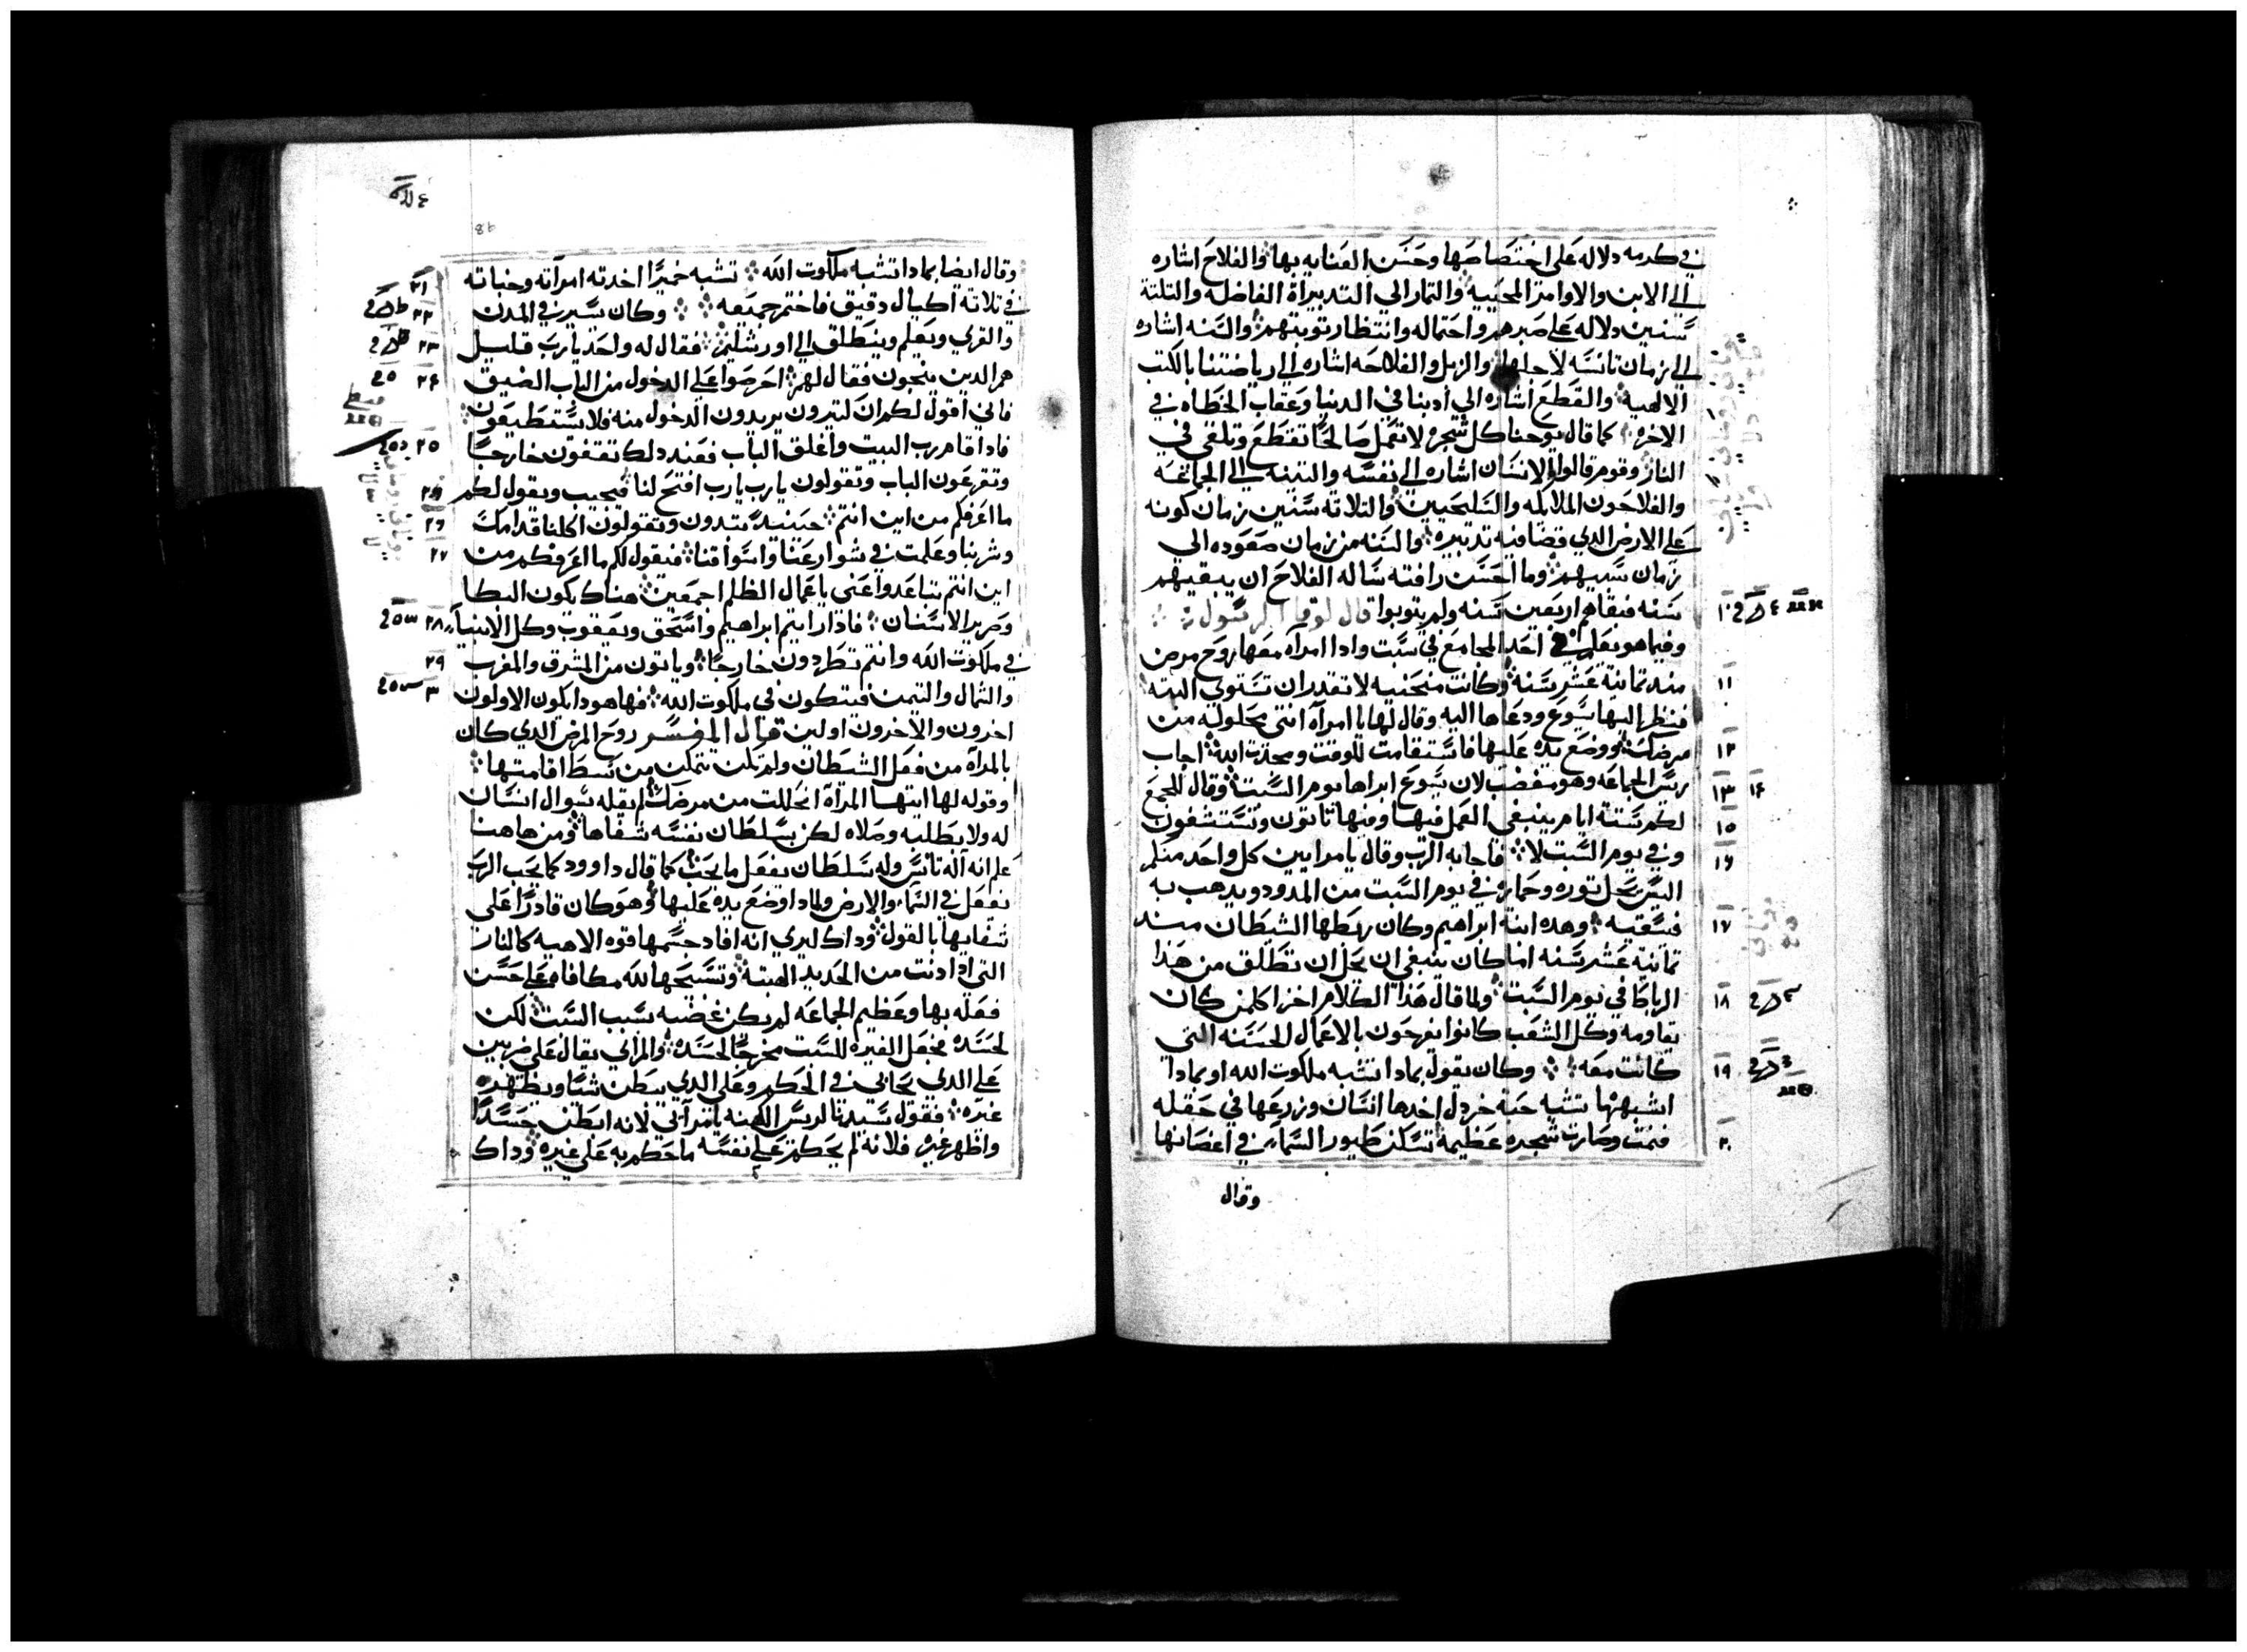 في كرمه دلاله على اختصاصها وحسن العنايه بها والفلاح اشاره
الي الابن والاوامر المحييه والثمار الي التدبيراة الفاضله والتلتة
سنين دلاله على صبرهم واحتماله وانتظار توبتهم والسنه اشاره
الي زمان تانسه لاجلها والزبل والفلاحه اشاره الي رياضتنا بالكتب
الالهيه والقطع اشاره الي أدبنا في الدنيا وعقاب الخطاه في
الاخره كما قال يوحنا كل شجره لا تعمل صالحًا تقطع وتلقي في
النار وقوم قالوا الانسان اشاره الي نفسه والتينه الي الجماعه
والفلاحون الملايكه والسليحيين والتلاته سنين زمان كونه
علي الارض الدي قضا فيه تدبيره والسنه من زمان صعوده الي
زمان سبيهم وما احسن رافته ساله الفلاح ان يبقيهم
سنه فبقاهم اربعين سنه ولم يتوبوا قال لوقا الرسول
١٠ وفيما هو يعلم في احد المجامع في سبت وادا امراه معها روح مرض
١١ مند تمانية عشر سنة وكانت منحنيه لا تقدر ان تستوي البته
فنظر اليها يسوع ودعاها اليه وقال لها يا امراه انتى محلوله من
١٢ مرضك ووضع يده عليها فاستقامت للوقت ومجدت الله اجاب
١٣ ١٤ ريس الجماعه وهو مغضب لان يسوع ابراها يوم السبت وقال للجمع
١٥ لكم ستة ايام ينبغي العمل فيها وفيها تاتون وتستشفون
١٦ وفي يوم السبت لا فاجابه الرب وقال يا مرايين كل واحد منكم
اليس يحل توره وحماره في يوم السبت من المدود ويدهب به
١٧ فيسقيه وهده ابنة ابراهيم وكان ربطها الشيطان مند
تمانية عشر سنه اما كان ينبغي ان يحل ان تطلق من هذا
١٨ الرباط في يوم السبت ولما قال هذا الكلام اخزا كلمن كان
يقاومه وكل الشعب كانوا يفرحون بالاعمال الحسنه التي
١٩ كانت معه وكان يقول بمادا تشبه ملكوت الله او بمادا
اشبهها تشبه حبة خردل اخدها انسان وزرعها في حقله
٢٠ فنمت وصارت شجره عظيمة تسكن طيور السماء في اغصانها
وقال
وقال ايضا بمادا تشبه ملكوت الله تشبه خميرًا اخدته امرآته وخباته
٢١ في تلاتة اكيال دقيق فاختمر جميعه
٢٢ وكان يسير في المدن
والقري ويعلم وينطلق الي اورشليم
٢٣ فقال له واحد يارب قليل
هم الدين ينجون فقال لهم
٢٤ احرصوا على الدخول من الباب الضيق
فاني اقول لكم ان كتيرون يريدون الدخول منه فلا يستطيعون
٢٥ فادا قام رب البيت واغلق الباب فعند دلك تقفون خارجًا
وتقرعون الباب وتقولون يارب يارب افتح لنا فيجيب ويقول لكم
٢٦ ما اعرفكم من اين انتم حينيد تبتدون وتقولون اكلنا قدامك
٢٧ وشربنا وعلمت في شوارعنا واسواقنا فيقول لكم ما اعرفكم من
اين انتم تباعدوا عني يا عمال الظلم اجمعين هناك يكون البكا
٢٨ وصرير الاسنان فادا رايتم ابراهيم واسحق ويعقوب وكل الانبياء
٢٩ في ملكوت الله وانتم تطردون خارجًا وياتون من المشرق والمغرب
٣٠ والشمال والتيمن فيتكون في ملكوت الله فها هودا يكون الاولون
اخرون والاخرون اولين قال المفسر روح المرض الدي كان
بالمرآه من فعل الشيطان ولم تكن تتمكن من بسط اقامتها
وقوله لها ايتها المرآة انحللت من مرضك لم يقله بسوال انسان
له ولا بطلبه وصلاه لكن بسلطان نفسه شفاها ومن هاهنا
علم انه آله تانس وله سلطان يفعل ما يحب كما قال داوود كما يحب الرب
يفعل في السماء والارض ولمادا وضع يده عليها وهو كان قادرًا على
شفايها بالقول وداك ليري انه افاد جسمها قوه الاهيه كالنار
التي ادا دنت من الحديد الهبته وتسبيحها لله مكافاه على حسن
فعله بها وعظيم الجماعه لم يكن غضبه بسبب السبت لكن
لحسده فجعل الغيره للسبت مخرجًا لحسده والمرائي يقال على ضربين
على الدي يحابي في الحكم وعلى الدي يبطن شيًا ويظهر
غيره فقول سيدنا لريس الكهنه يامرآئي لانه ابطن حسدًا
واظهر غيره فلانه لم يحكم على نفسه ما حكم به على غيره وداك